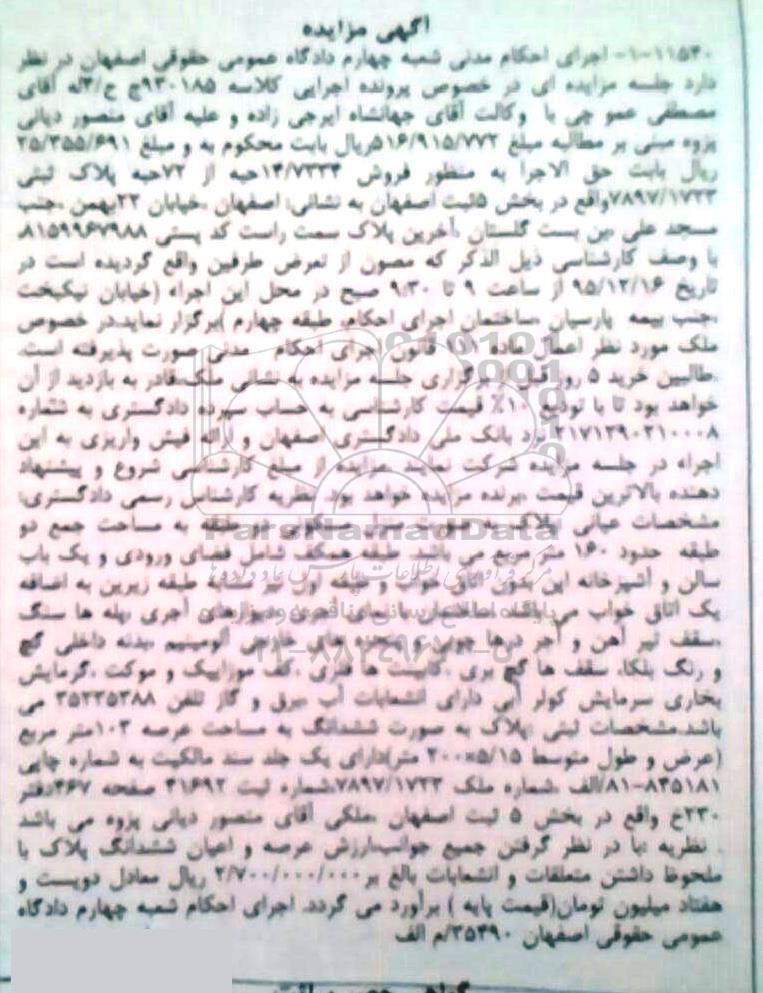 آگهی مزایده
۱۱۵۳۰-۱- اجرای احکام مدنی شعبه چهارم دادگاه عمومی حقوقی اصفهان در نظر
دارد جلسه مزایده ای در خصوص پرونده اجرایی کلاسه ۹۳۰۱۸۵ج ح/۴له آقای
مصطفی عمو چی با وکالت آقای جهانشاه ایرجی زاده و علیه آقای منصور دیانی
پزوه مبنی بر مطالبه مبلغ ۵۱۶/۹۱۵/۷۷۲ریال بابت محکوم به و مبلغ ۲۵/۳۵۵/۶۹۱
ریال بابت حق الاجرا به منظور فروش ۱۴/۷۳۳۴حبه از ۷۲حبه پلاک ثبتی
۷۸۹۷/۱۷۲۳واقع در بخش ۵ثبت اصفهان به نشانی: اصفهان ،خیابان ۲۲بهمن ،جنب
مسجد علی ،بن بست گلستان ،آخرین پلاک سمت راست کد پستی ۸۱۵۹۹۶۷۹۸۸
با وصف کارشناسی ذیل الذکر که مصون از تعرض طرفین واقع گردیده است در
تاریخ ۹۵/۱۲/۱۶ از ساعت ۹ تا ۹:۳۰ صبح در محل این اجراء (خیابان نیکبخت
،جنب بیمه پارسیان ،ساختمان اجرای احکام، طبقه چهارم )برگزار نماید.در خصوص
ملک مورد نظر اعمال ماده قانون اجرای احکام مدنی صورت پذیرفته است.
طالبین خرید ۵ روز قبل از برگزاری جلسه مزایده به نشانی ملک،قادر به بازدید از آن
خواهد بود تا با تودیع ۱۰٪ قیمت کارشناسی به حساب سپرده دادگستری به شماره
۲۱۷۱۲۹۰۲۱۰۰۰۸ نزد بانک ملی دادگستری اصفهان و ارائه فیش واریزی به این
اجراء در جلسه مزایده شرکت نمایند .مزایده از مبلغ کارشناسی شروع و پیشنهاد
دهنده بالاترین قیمت ،برنده مزایده خواهد بود. نظریه کارشناس رسمی دادگستری:
مشخصات عیانی :پلاک به صورت منزل مسکونی دو طبقه به مساحت جمع دو
طبقه حدود ۱۶۰ متر مربع می باشد. طبقه همکف شامل فضای ورودی و یک باب
سالن و آشپزخانه اپن بدون اتاق خواب و طبقه اول نیز مشابه طبقه زیرین به اضافه
یک اتاق خواب می باشد. ساختمان بنای آجری ،دیوارهای آجری ،پله ها سنگ
،سقف تیر آهن و آجر ،درها چوبی و پنجره های خارجی آلومینیم ،بدنه داخلی گچ
و رنگ بلکا، سقف ها گچ بری ،کابینت ها فلزی ،کف موزاییک و موکت ،گرمایش
بخاری سرمایش کولر آبی دارای انشعابات آب ،برق و گاز تلفن ۳۵۲۳۵۳۸۸ می
باشد.مشخصات ثبتی :پلاک به صورت ششدانگ به مساحت عرصه ۱۰۳متر مربع
(عرض و طول متوسط ۵/۱۵×۲۰۰ متر)دارای یک جلد سند مالکیت به شماره چاپی
۸۱-۸۳۵۱۸۱/الف ،شماره ملک ۷۸۹۷/۱۷۲۳،شماره ثبت ۴۱۶۹۲ صفحه ۳۶۷دفتر
۲۳۰خ واقع در بخش ۵ ثبت اصفهان ،ملکی آقای منصور دیانی پزوه می باشد
. نظریه :با در نظر گرفتن جمیع جوانب،ارزش عرصه و اعیان ششدانگ پلاک با
ملحوظ داشتن متعلقات و انشعابات بالغ بر ۲/۷۰۰/۰۰۰/۰۰۰ ریال معادل دویست و
هفتاد میلیون تومان(قیمت پایه ) برآورد می گردد. اجرای احکام شعبه چهارم دادگاه
عمومی حقوقی اصفهان ۳۵۴۹۰/م الف
ParsNamadData